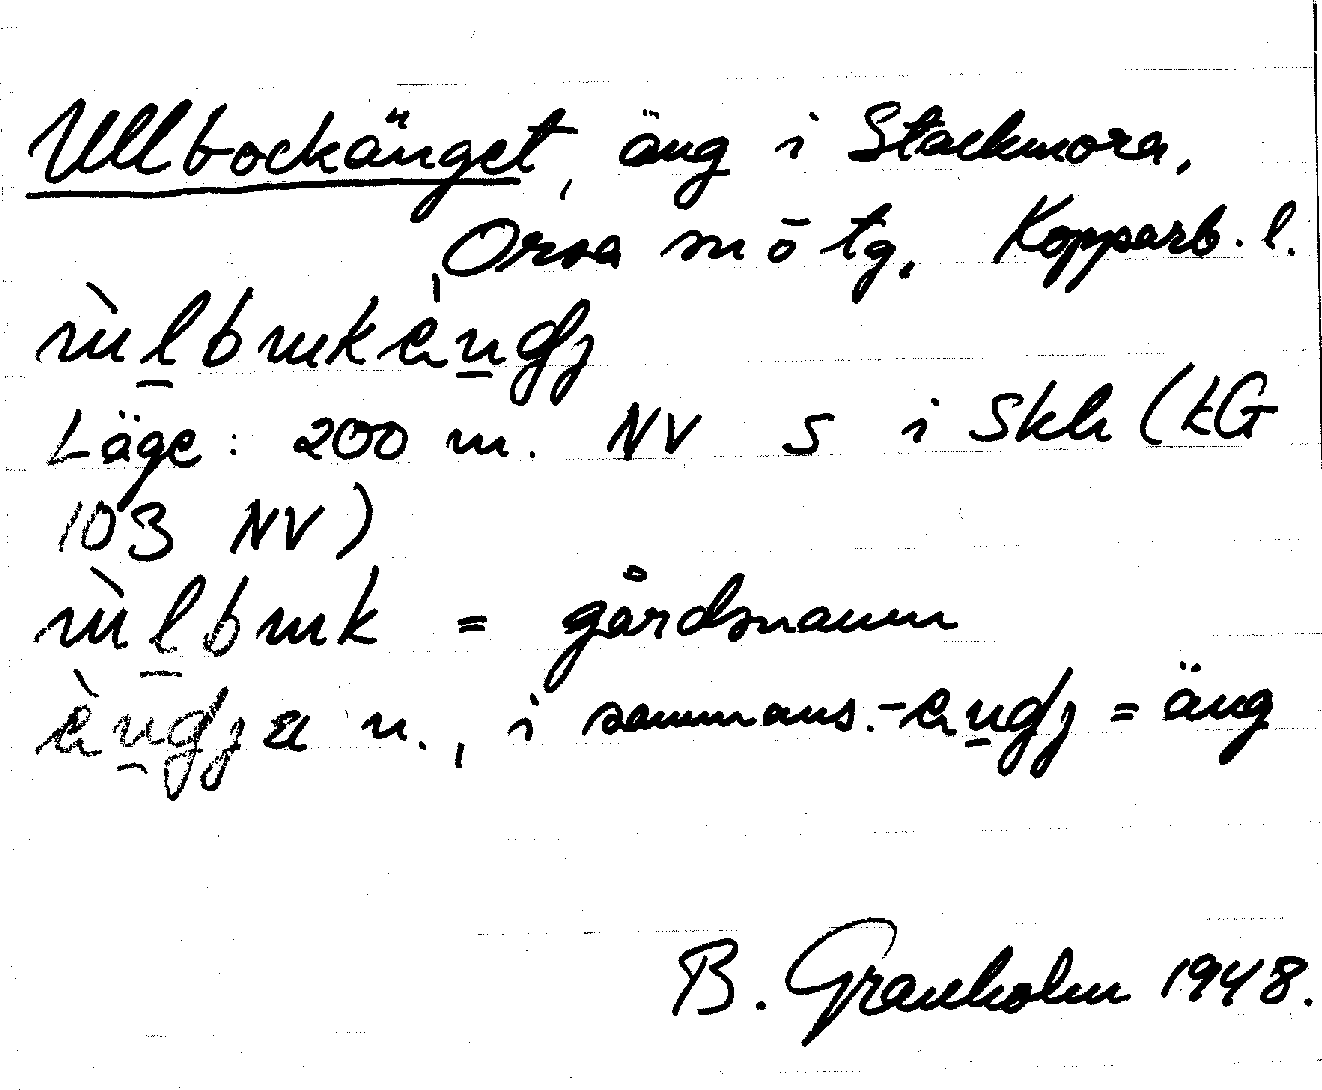 Ullbockänget, äng i Stackmora,
Orsa sn ö tg, Kopparb. l.
ùlbukèngj
Läge: 200 m. NV S i Skh (kG
103 NV)
ùlbuk = gårdsnamn
èngja n., i sammans. -engj = äng
B. Granholm 1948.